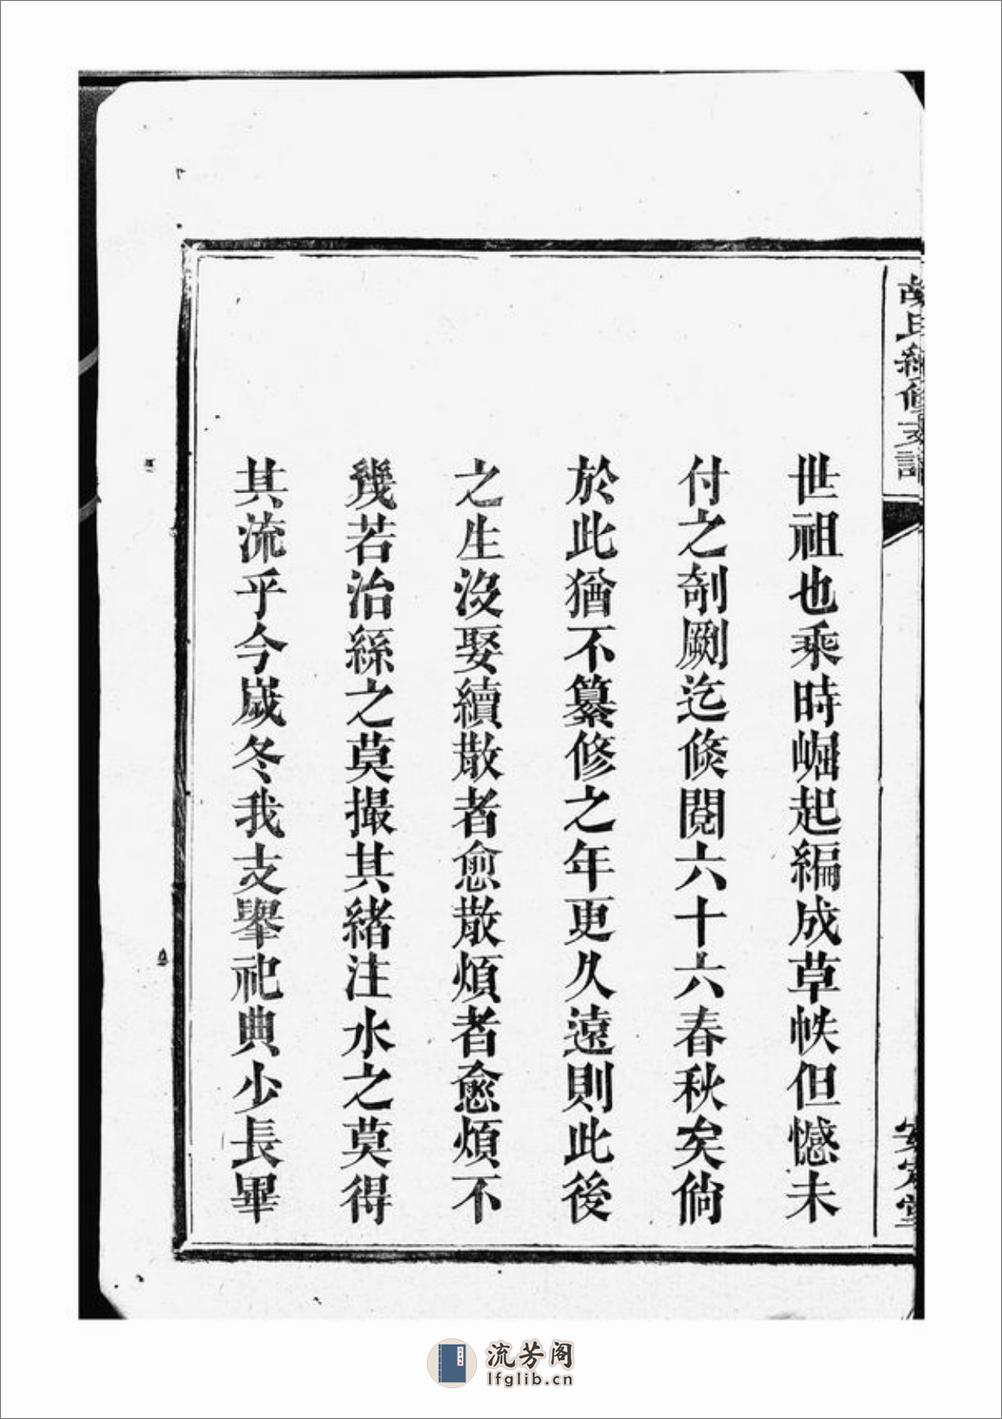 胡氏續修支譜
安定堂
世祖也乘時崛起編成草帙但憾未
付之剞劂迄倐閱六十六春秋矣倘
於此猶不纂修之年更久遠則此後
之生沒娶續散者愈散煩者愈煩不
幾若治絲之莫撮其緒注水之莫得
其流乎今嵗冬我支舉祀典少長畢
流芳阁
lfglib.cn